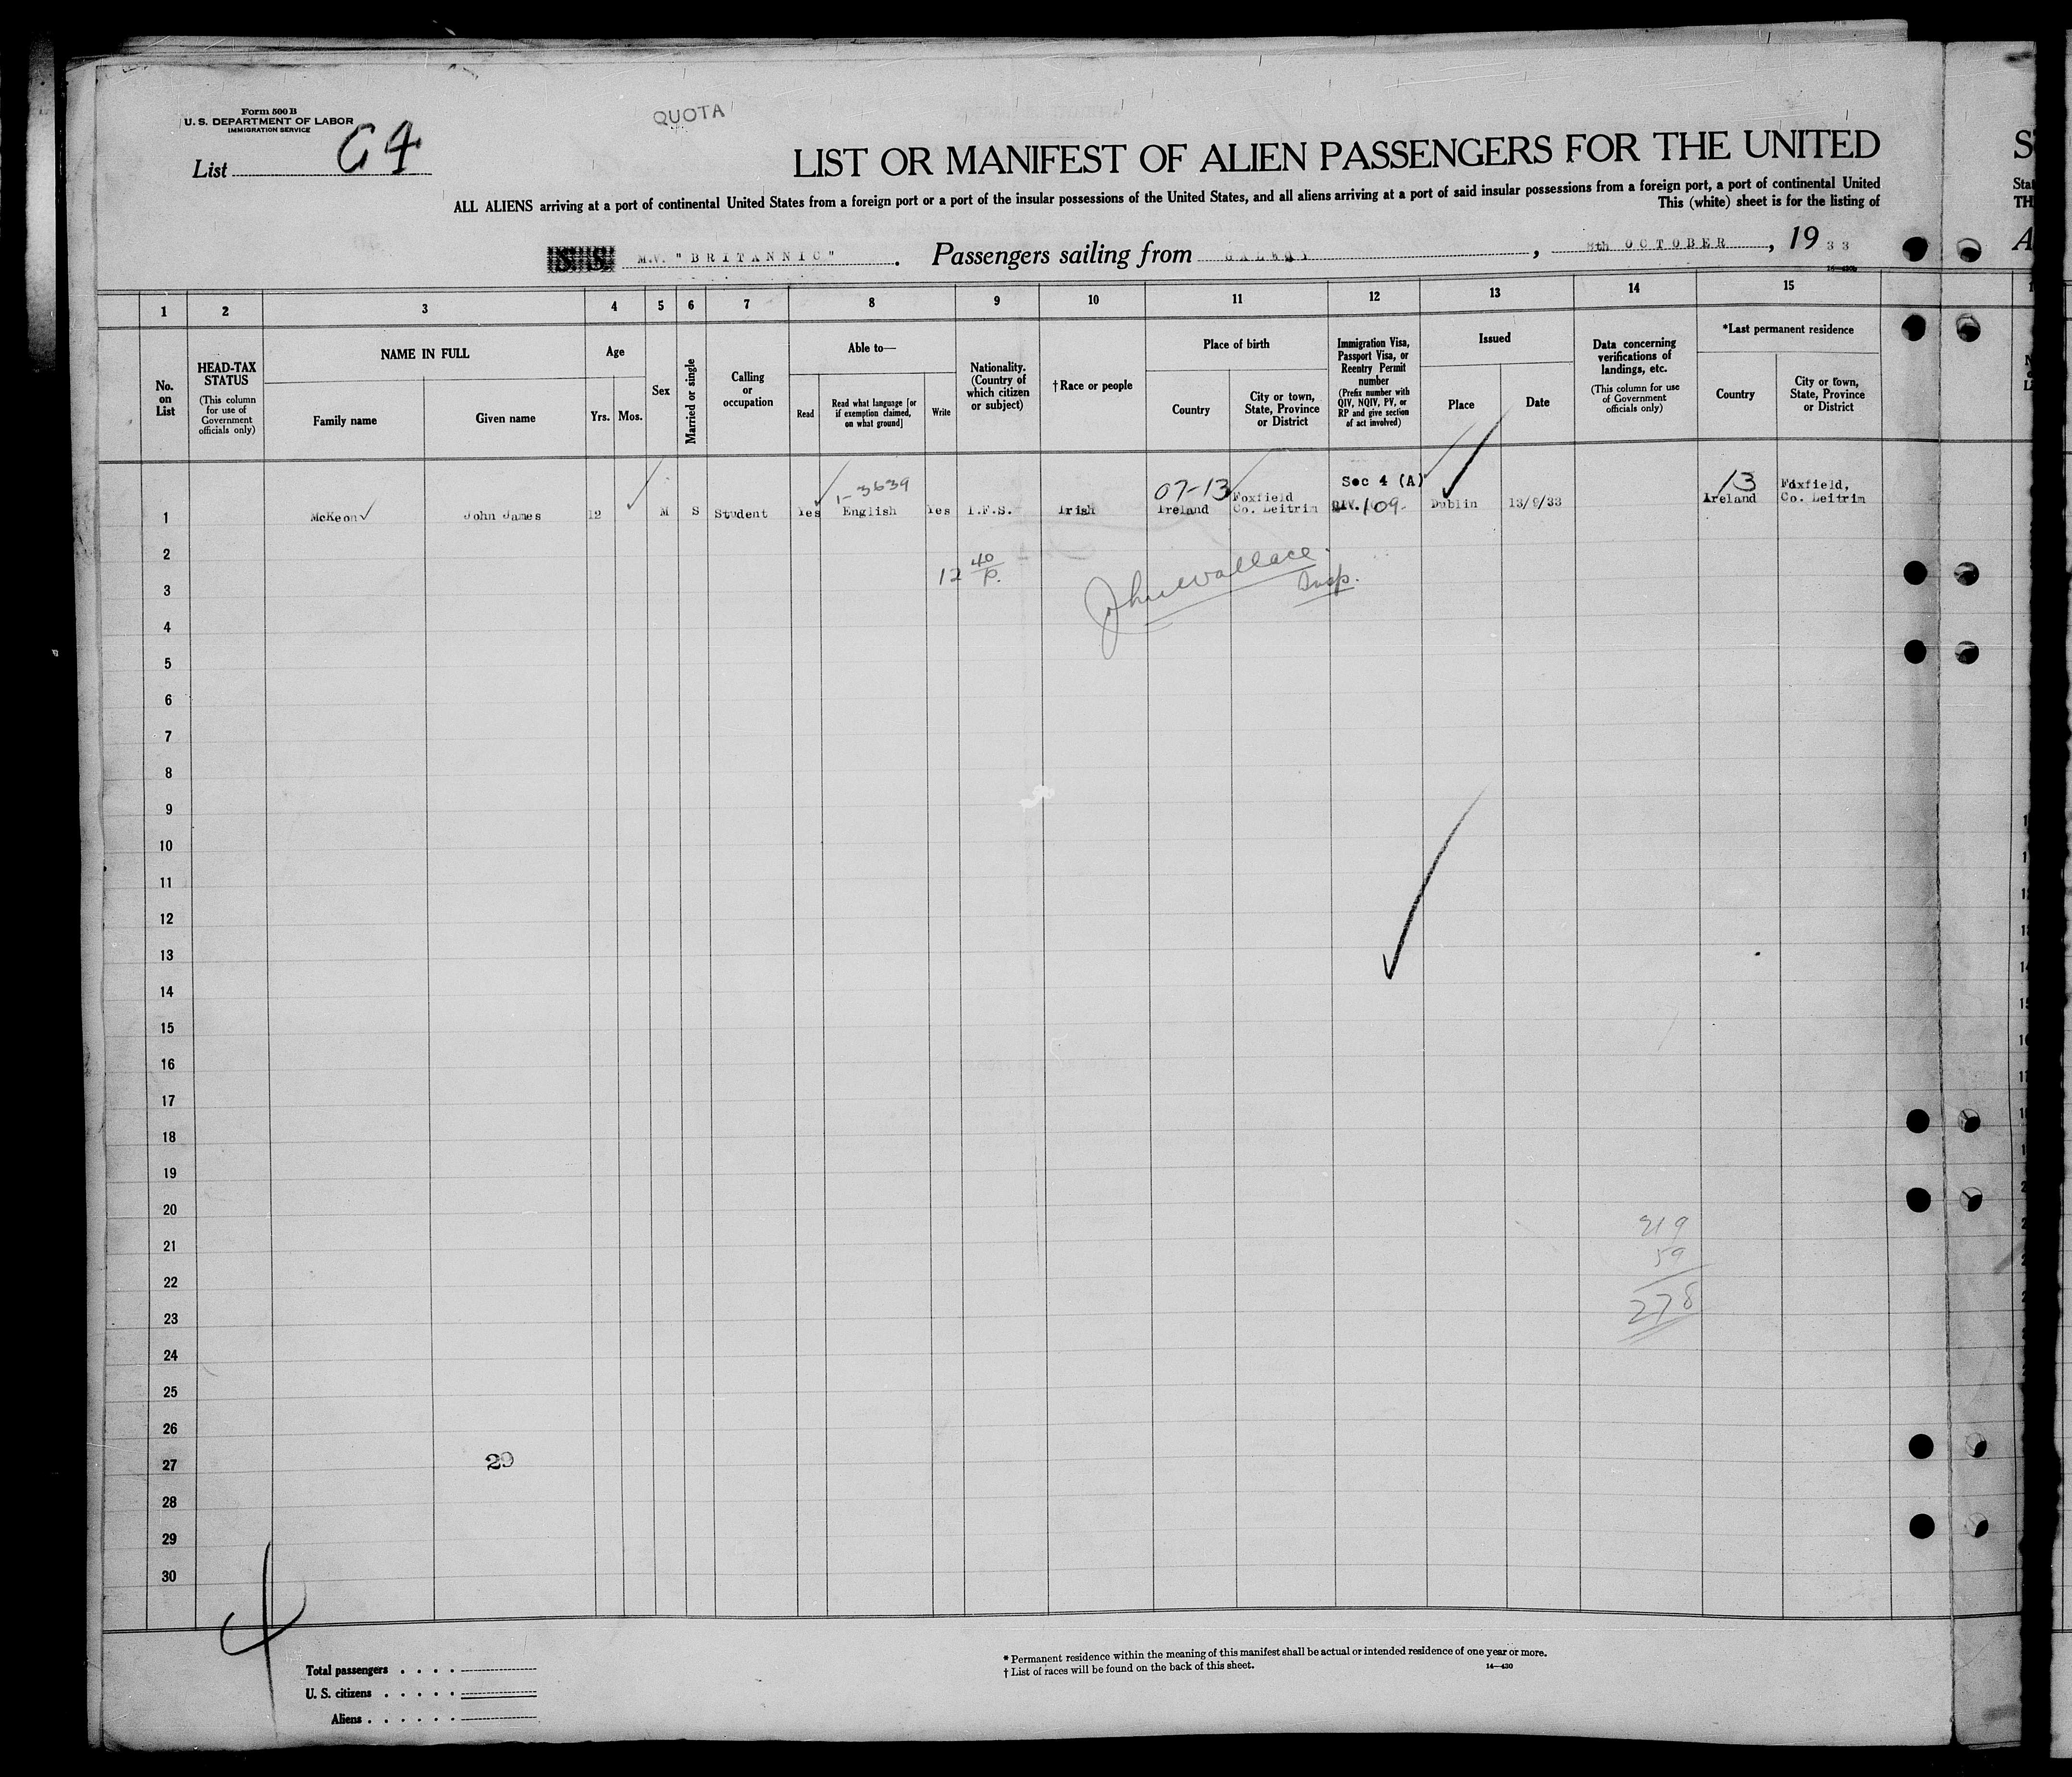 Form 500 B
U. S. DEPARTMENT OF LABOR
IMMIGRATION SERVICE
QUOTA
List C4
LIST OR MANIFEST OF ALIEN PASSENGERS FOR THE UNITED
ALL ALIENS arriving at a port of continental United States from a foreign port or a port of the insular possessions of the United States, and all aliens arriving at a port of said insular possessions from a foreign port, a port of continental United
This (white) sheet is for the listing of
S S M.V. "BRITANNIC". Passengers sailing from GALWAY, 8th OCTOBER, 19 33
1 2 3 4 5 6 7 8 9 10 11 12 13 14 15
No. on List
HEAD-TAX STATUS
(This column for use of Government officials only)
NAME IN FULL
Family name
Given name
Age
Yrs.
Mos.
Sex
Married or single
Calling or occupation
Able to—
Read
Read what language [or if exemption claimed, on what ground]
Write
Nationality. (Country of which citizen or subject)
†Race or people
Place of birth
Country
City or town, State, Province or District
Immigration Visa, Passport Visa, or Reentry Permit number
(Prefix number with QIV, NQIV, PV, or RP and give section of act involved)
Issued
Place
Date
Data concerning verifications of landings, etc.
(This column for use of Government officials only)
*Last permanent residence
Country
City or town, State, Province or District
1-3639 07-13 Foxfield Sec 4 (A) 13 Foxfield,
1 McKeon John James 12 M S Student Yes English Yes I.F.S. Irish Ireland Co. Leitrim QIV. 109. Dublin 13/9/33 Ireland Co. Leitrim
2
12 40/P.
John Wallace
Insp.
3
4
5
6
7
8
9
10
11
12
13
14
15
16
17
18
19
20
219
21
59
22
278
23
24
25
26
27
29
28
29
30
Total passengers . . . .
U. S. citizens . . . . .
Aliens . . . . . .
* Permanent residence within the meaning of this manifest shall be actual or intended residence of one year or more.
† List of races will be found on the back of this sheet.
14—430